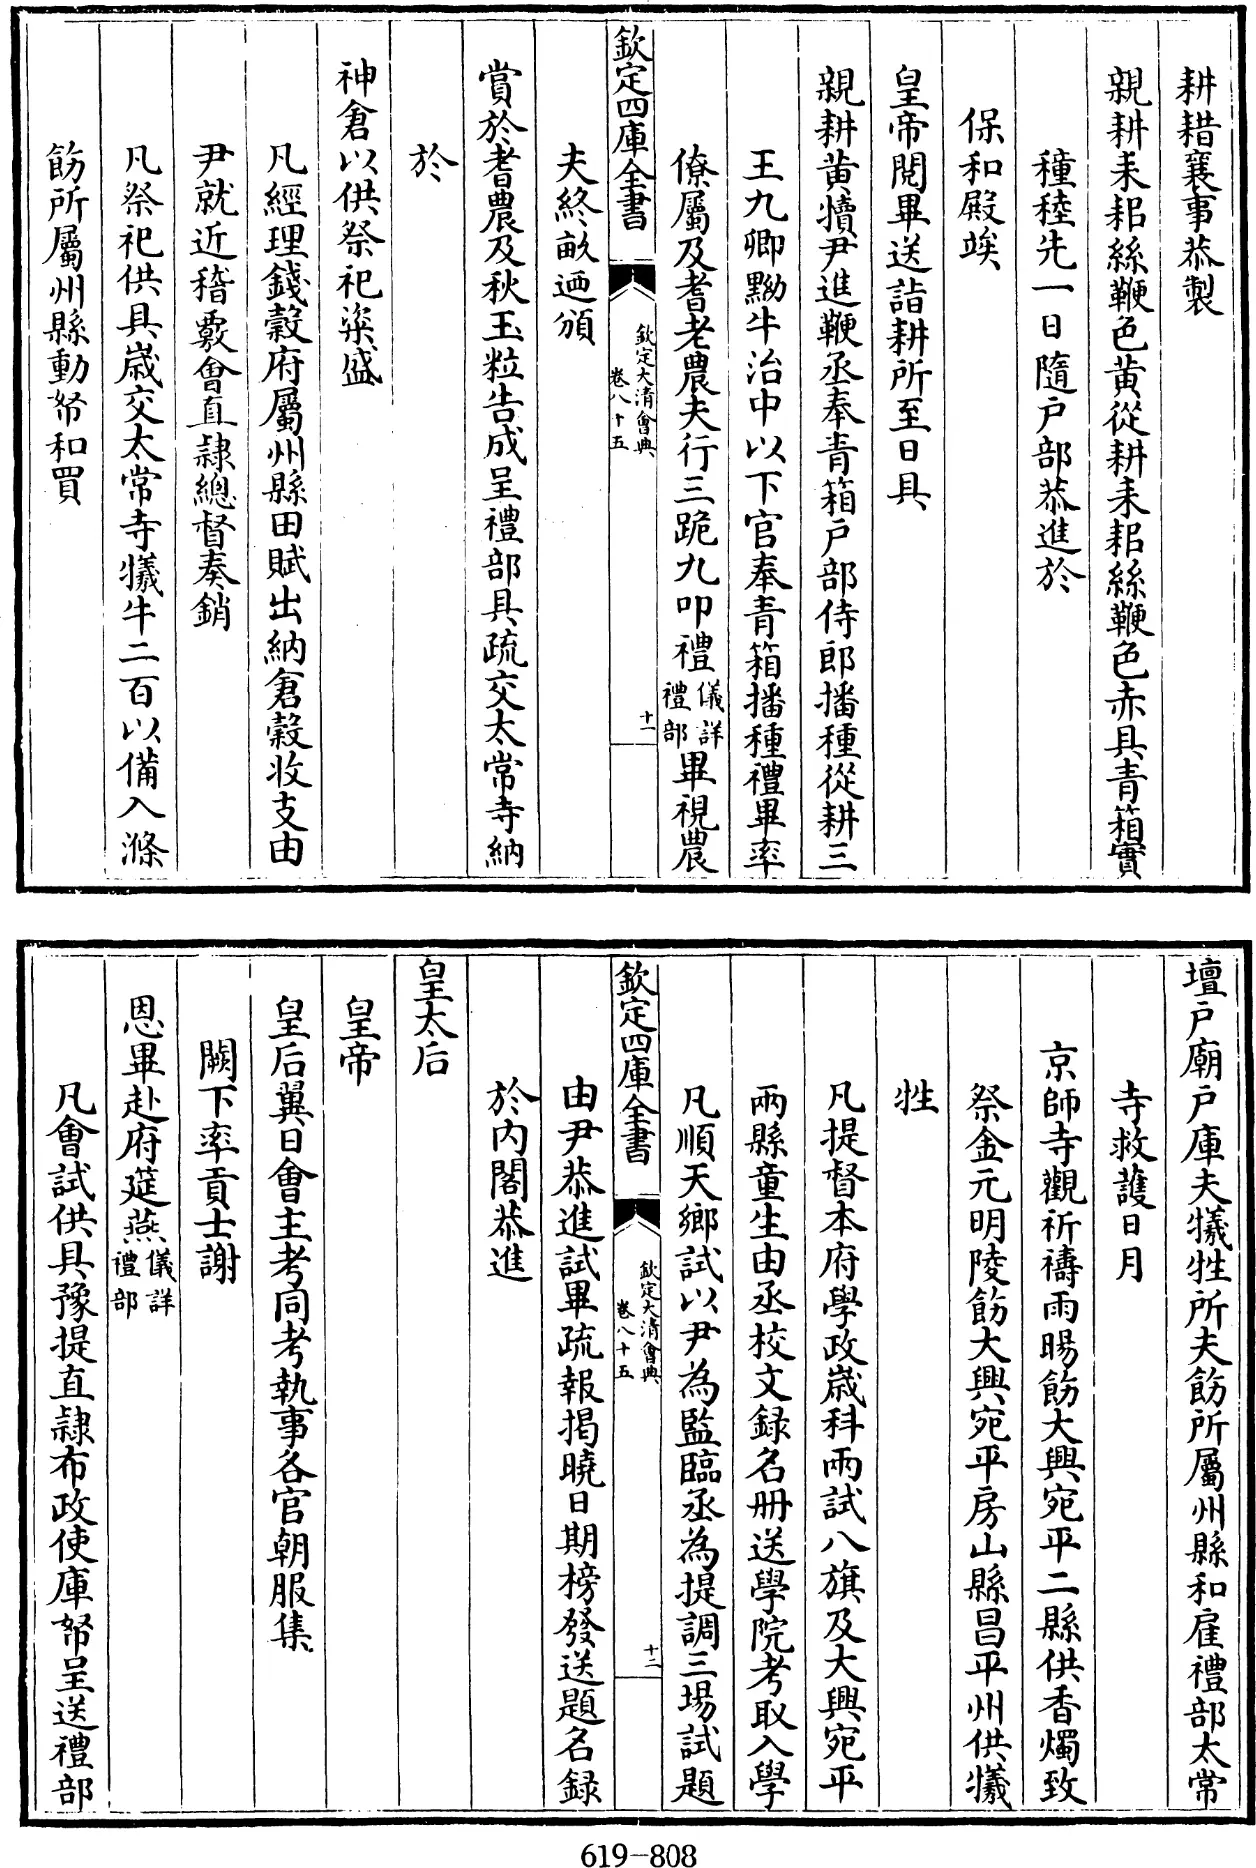 耕耤襄事恭製
親耕耒耜絲鞭色黄從耕耒耜絲鞭色赤具青箱實
種稑先一日隨户部恭進於
保和殿竢
皇帝閱畢送詣耕所至日具
親耕黄犢尹進鞭丞奉青箱户部侍郎播種從耕三
王九卿黝牛治中以下官奉青箱播種禮畢率
僚屬及耆老農夫行三跪九叩禮儀詳禮部畢視農
欽定四庫全書
欽定大清會典
卷八十五
十一
夫終畝迺頒
賞於耆農及秋玉粒告成呈禮部具疏交太常寺納
於
神倉以供祭祀粢盛
凡經理錢穀府屬州縣田賦出納倉穀收支由
尹就近稽覈會直隸總督奏銷
凡祭祀供具嵗交太常寺犧牛二百以備入滌
飭所屬州縣動帑和買
壇户廟户庫夫犧牲所夫飭所屬州縣和雇禮部太常
寺救䕶日月
京師寺觀祈禱雨暘飭大興宛平二縣供香燭致
祭金元明陵飭大興宛平房山縣昌平州供犧
牲
凡提督本府學政嵗科兩試八旗及大興宛平
兩縣童生由丞校文録名册送學院考取入學
凡順天鄉試以尹為監臨丞為提調三場試題
欽定四庫全書
欽定大清會典
卷八十五
十二
由尹恭進試畢疏報揭曉日期榜發送題名録
於内閣恭進
皇太后
皇帝
皇后翼日會主考同考執事各官朝服集
闕下率貢士謝
恩畢赴府筵燕儀詳禮部
凡會試供具豫提直隸布政使庫帑呈送禮部
619-808